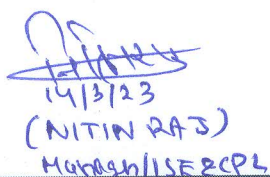 14/3/23
(NITIN RAJ)
Manager/ISE&CPL